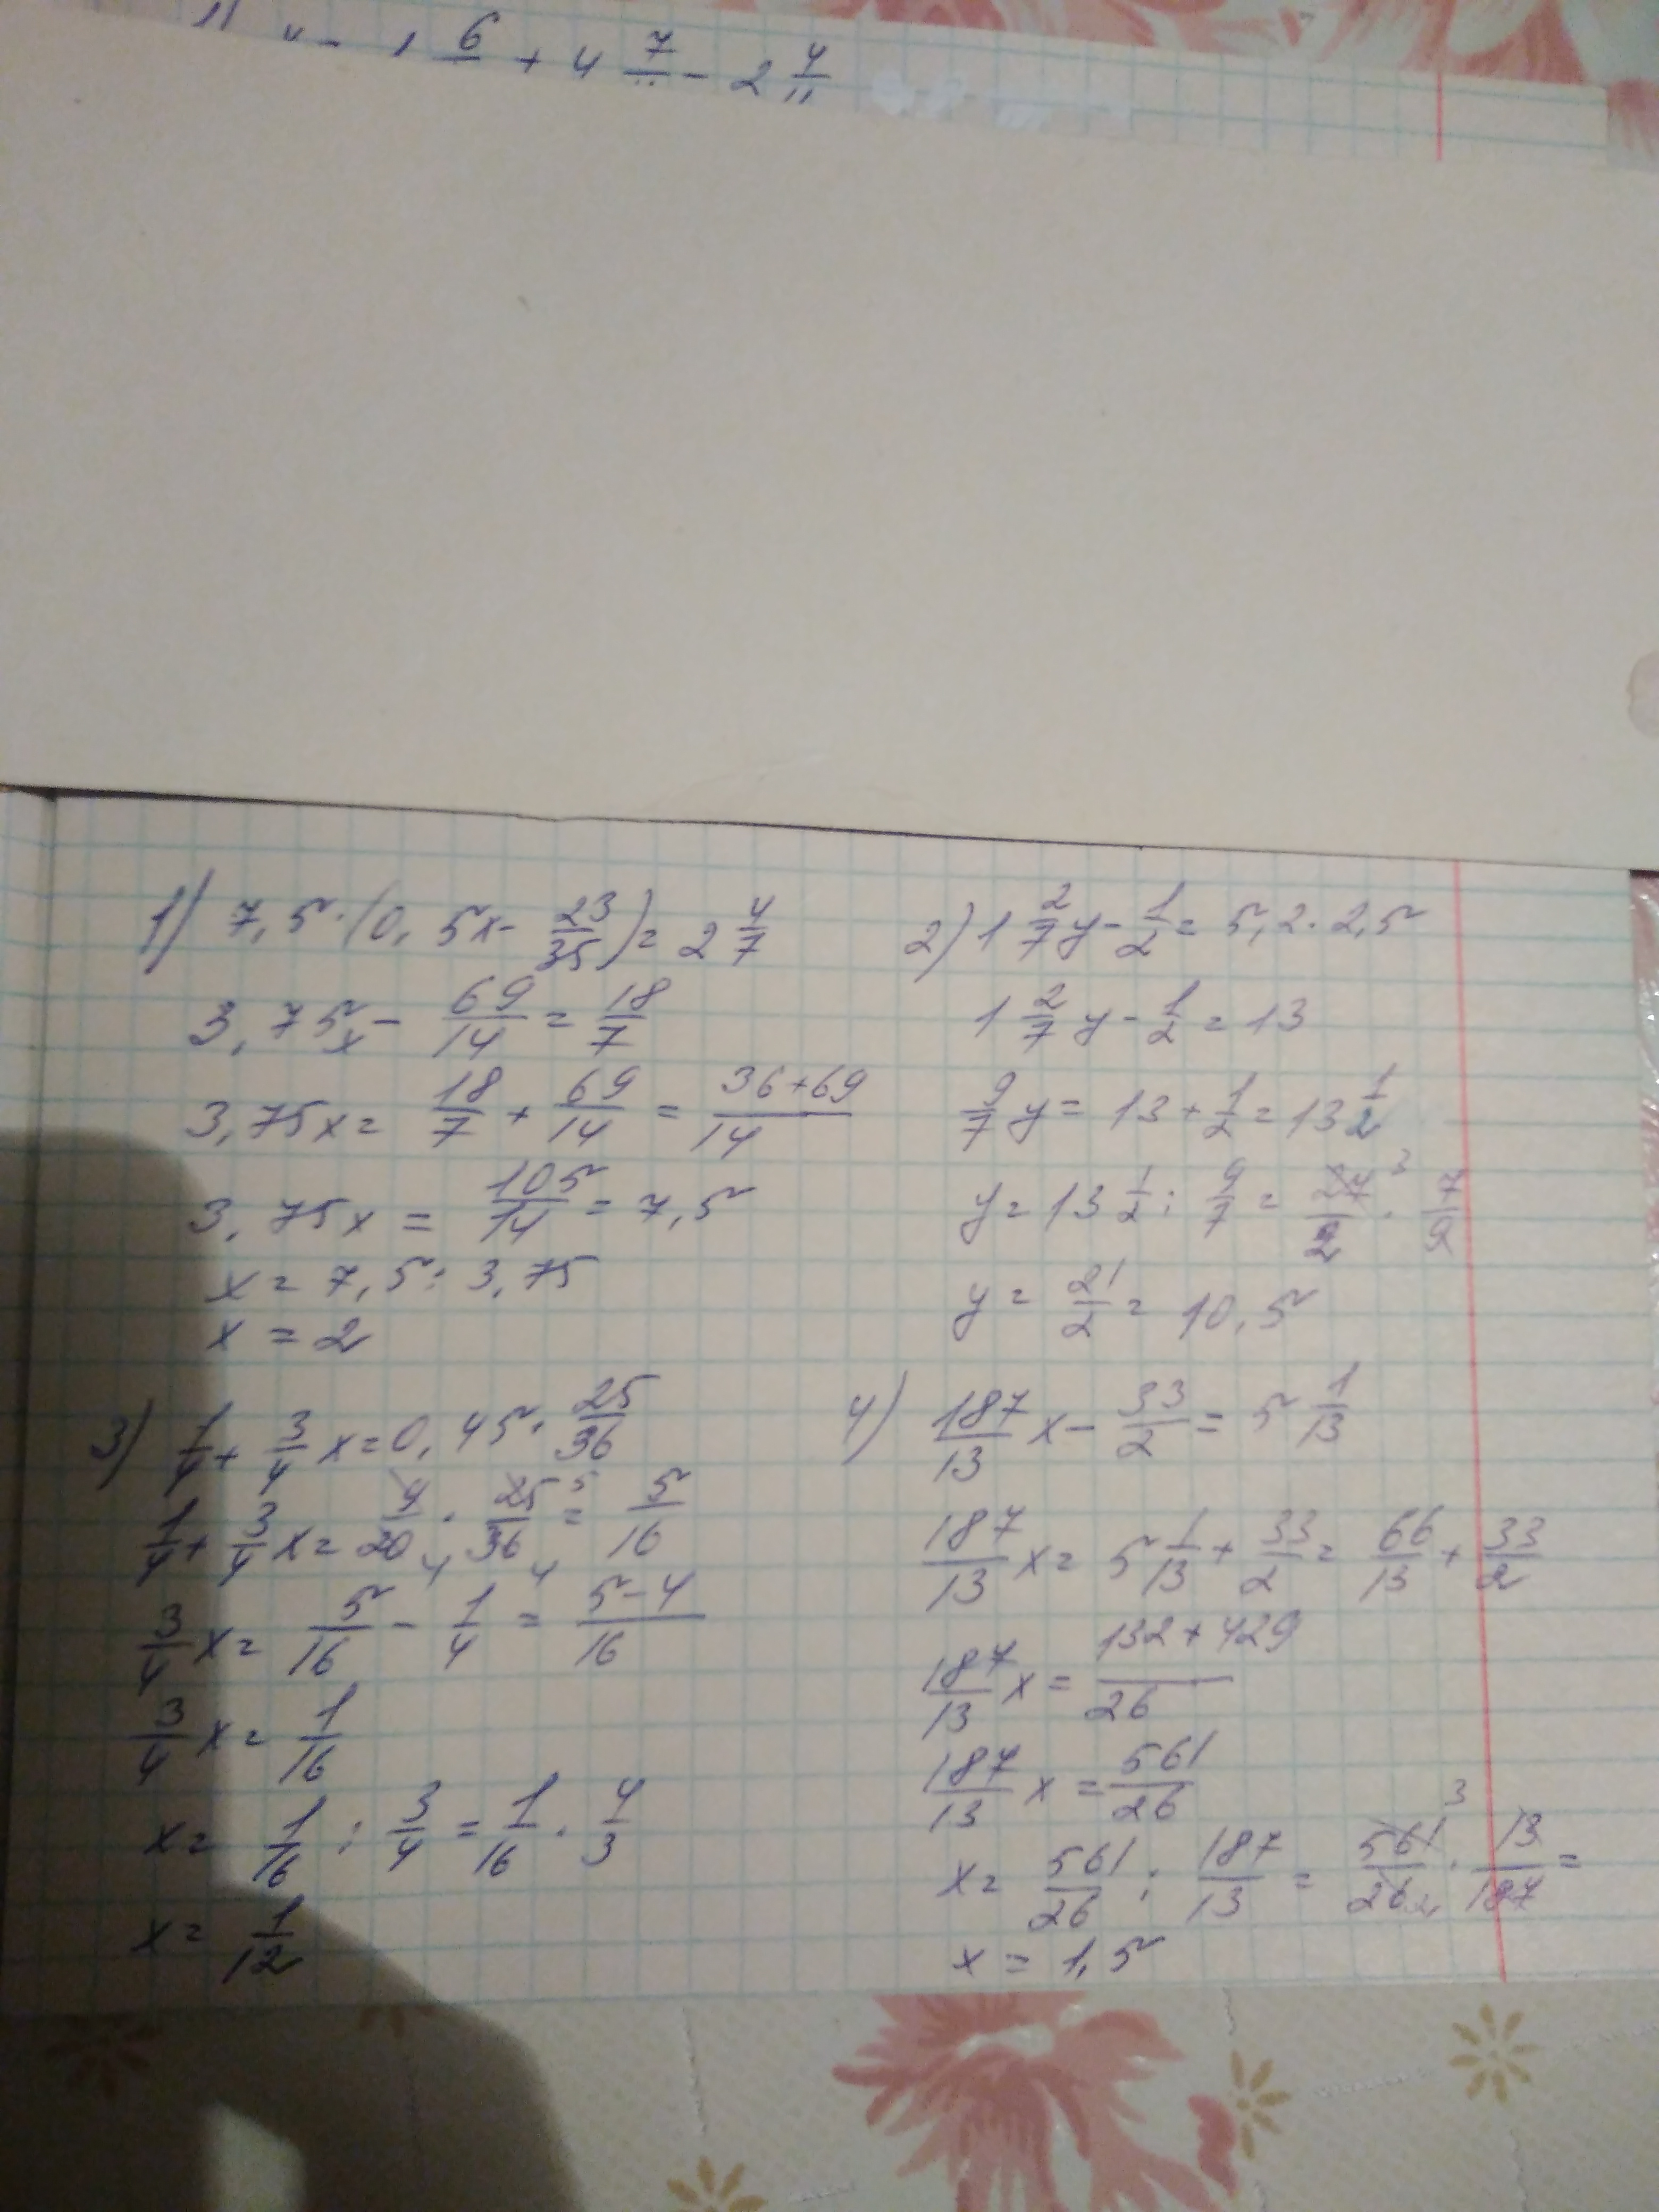 - 1 6/ + 4 7/11 - 2 4/11
1) 7,5·(0,5x - 23/35) = 2 4/7
3,75x - 69/14 = 18/7
3,75x = 18/7 + 69/14 = (36+69)/14
3,75x = 105/14 = 7,5
x = 7,5 : 3,75
x = 2
2) 1 2/7 y - 1/2 = 5,2 · 2,5
1 2/7 y - 1/2 = 13
9/7 y = 13 + 1/2 = 13 1/2
y = 13 1/2 : 9/7 = 27/2 3 · 7/9
y = 21/2 = 10,5
3) 1/4 + 3/4 x = 0,45 · 25/36
1/4 + 3/4 x = 9/20 4 · 25/36 5 4 = 5/16
3/4 x = 5/16 - 1/4 = (5-4)/16
3/4 x = 1/16
x = 1/16 : 3/4 = 1/16 · 4/3
x = 1/12
4) 187/13 x - 33/2 = 5 1/13
187/13 x = 5 1/13 + 33/2 = 66/13 + 33/2
187/13 x = (132+429)/26
187/13 x = 561/26
x = 561/26 : 187/13 = 561/26 3 2 · 13/187 =
x = 1,5